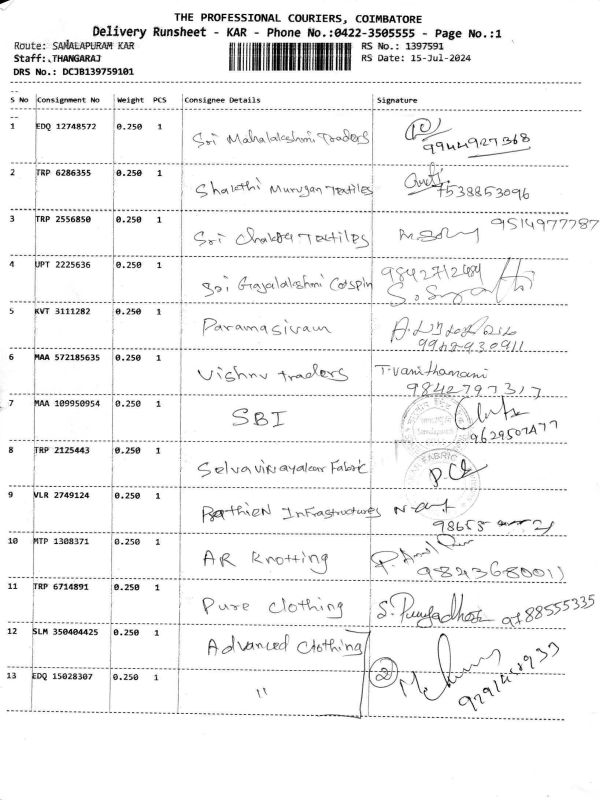 THE PROFESSIONAL COURIERS, COIMBATORE
Delivery Runsheet - KAR - Phone No.:0422-3505555 - Page No.:1
Route: SAMALAPURAM KAR RS No.: 1397591
Staff:.THANGARAJ RS Date: 15-Jul-2024
DRS No.: DCJB139759101
S No Consignment No Weight PCS Consignee Details Signature
1 EDQ 12748572 0.250 1 Sri Mahalakshmi Traders 9944927368
2 TRP 6286355 0.250 1 Shakthi Murugan Textiles 7538853096
3 TRP 2556850 0.250 1 Sri Chakra Textiles 9514977787
4 UPT 2225636 0.250 1 Sri Gajalakshmi Cotspin 9842712484
5 KVT 3111282 0.250 1 Paramasivam
6 MAA 572185635 0.250 1 Vishnu traders T.vanithamani
9842797317
7 MAA 109950954 0.250 1 SBI 9629507477
8 TRP 2125443 0.250 1 Selvavinayakar Fabric
9 VLR 2749124 0.250 1 Infrastructures
10 MTP 1308371 0.250 1 AR Knotting 9843680011
11 TRP 6714891 0.250 1 Pure clothing 9788555335
12 SLM 350404425 0.250 1 Advanced Clothing
13 EDQ 15028307 0.250 1 " 2